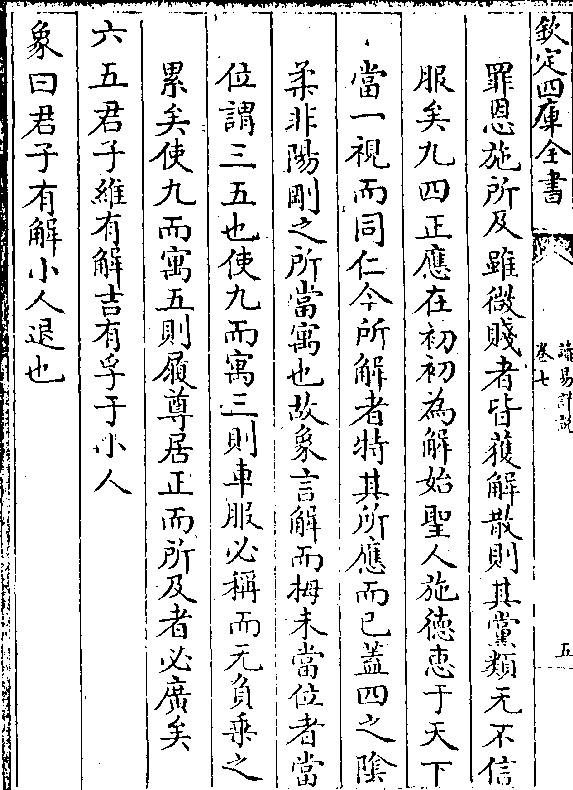 欽定四庫全書
讀易詳說
卷七
五
罪恩施所及雖微賤者皆獲解散則其黨類无不信
服矣九四正應在初初為解始聖人施德惠于天下
當一視而同仁今所解者特其所應而已蓋四之陰
柔非陽剛之所當寓也故象言解而拇未當位者當
位謂三五也使九而寓三則車服必稱而无負乗之
累矣使九而寓五則履尊居正而所及者必廣矣
六五君子維有解吉有孚于小人
象曰君子有解小人退也